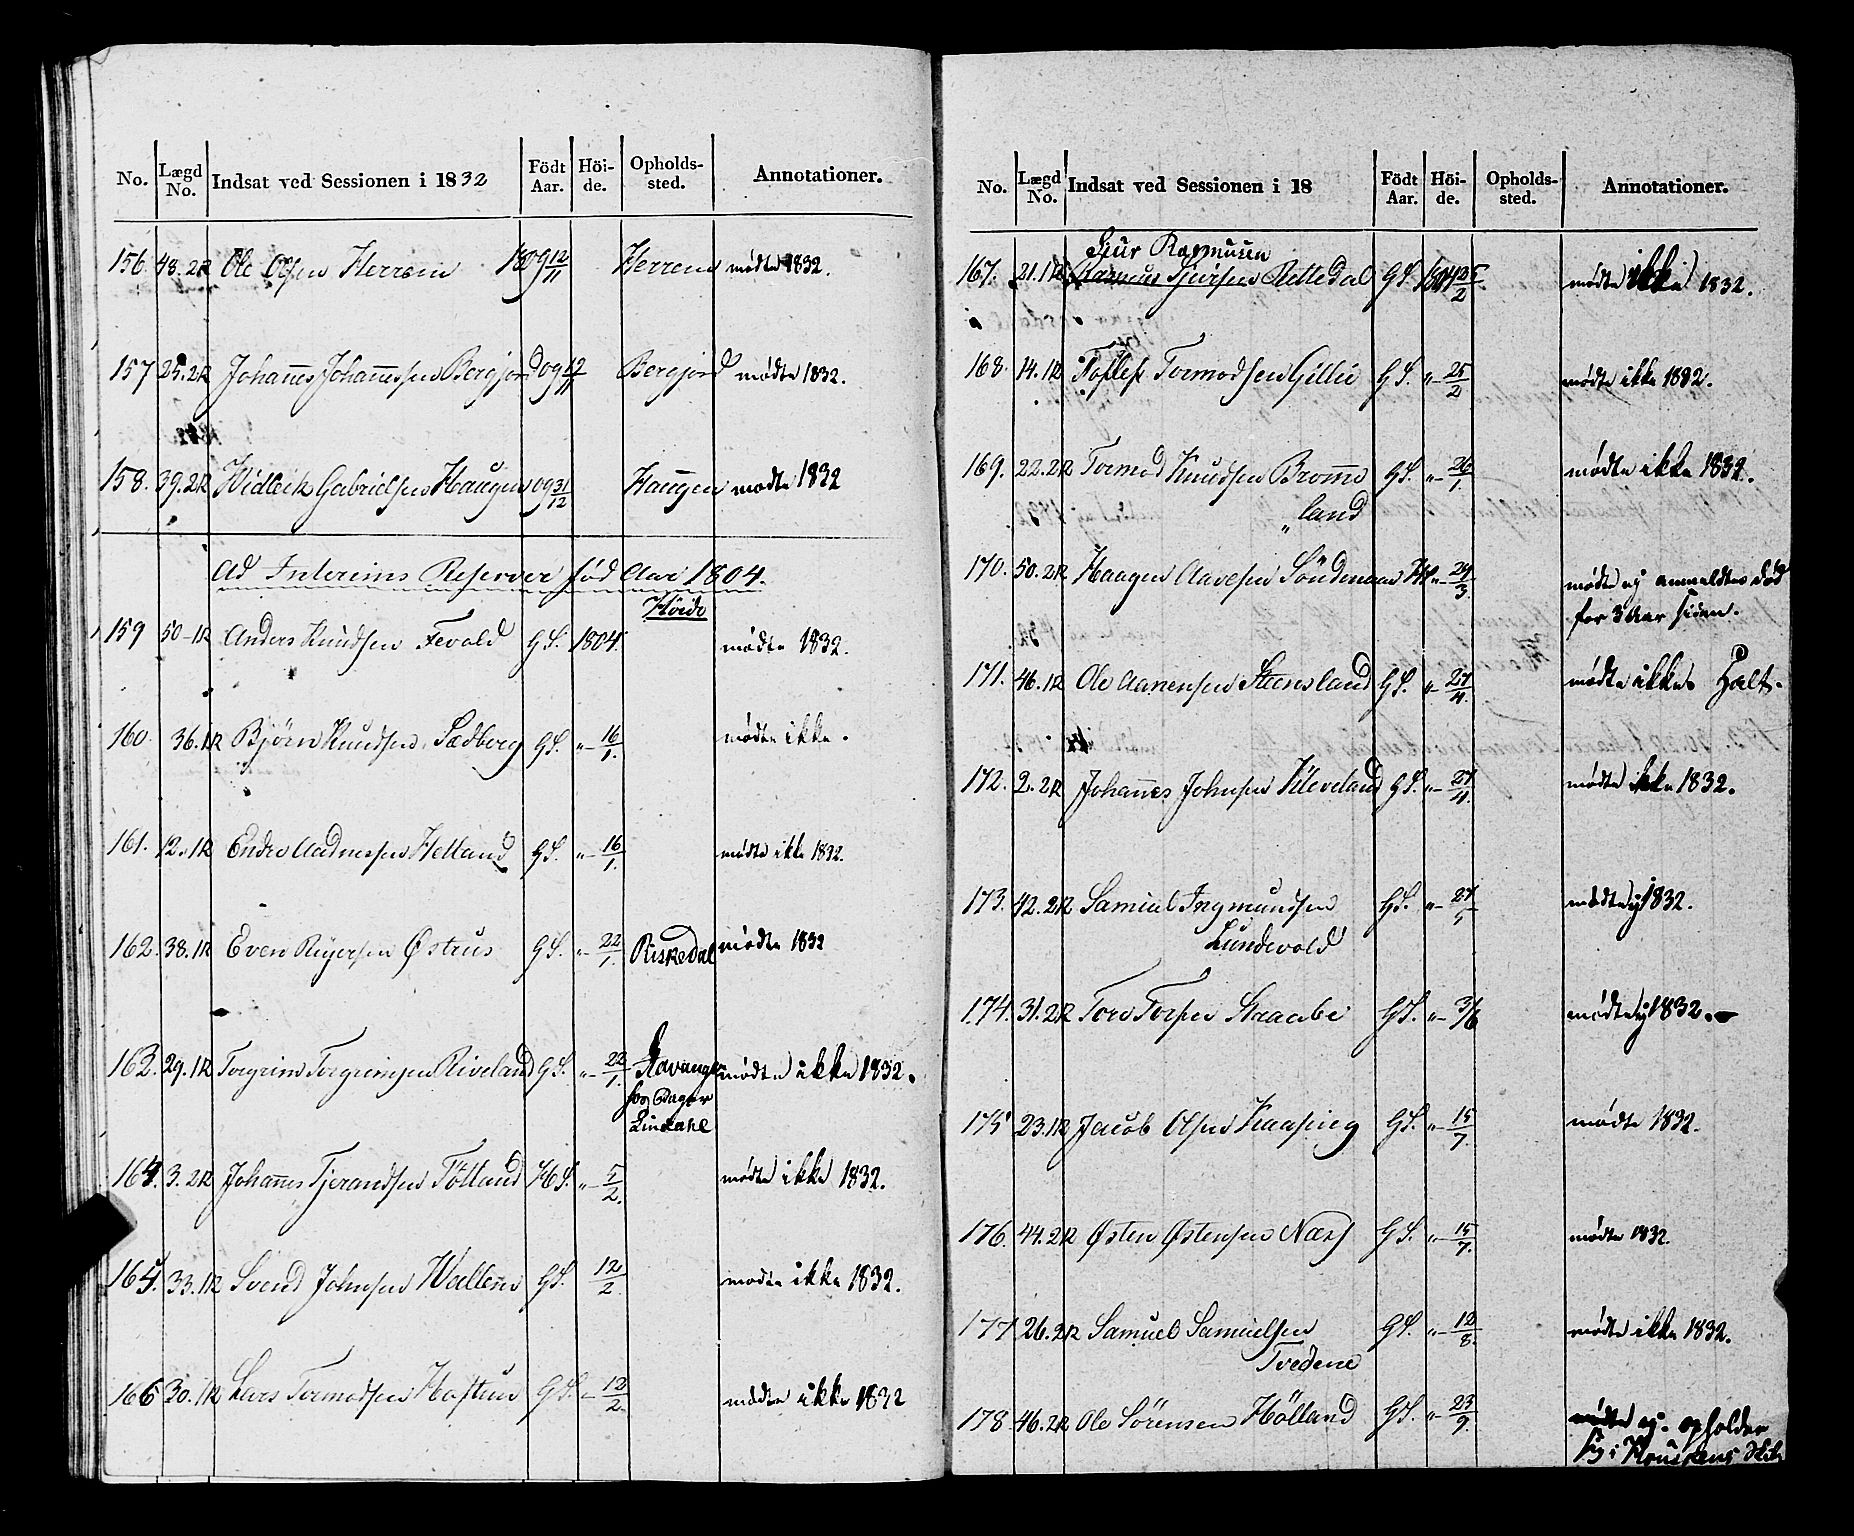 No. Lægd No. Indsat ved Sessionen i 1832 Födt Aar. Höi-de. Opholds-sted. Annotationer.
156. 48. 2R Ole Olsen Herrem 1809 12/11 Herrem mødte 1832.
157 25. 2R Johannes Johannessen Bergjord 09 12/11 Bergjord mødte 1832.
158. 39. 2R Gabrielsen Haugen 09 31/12 Haugen mødte 1832
Ad Interims Reserver fød Aar 1804.
159 50-1R Anders Knudsen Fevold GS. 1804. mødte 1832.
160. 36. 1R Bjørn Knudsen Sædberg GS. " 16/1. mødte ikke.
161. 12. 1R Endre Aadnessen Helland GS. " 16/1. mødte ikke 1832.
162. 38. 1R Even Reyersen Østrus GS. " 22/1. Riskedal mødte 1832
163. 29. 1R Torgrim Torgrimsen Riveland GS. " 22/1. Stavanger mødte ikke 1832.
hos Bager
Lindahl
164. 3. 2R Johannes Tjerandsen Tötland HS. " 5/2. mødte ikke 1832.
165. 33. 1R Svend Johnsen GS. 12/2. mødte ikke 1832.
166 30. 1R Lars Tormodsen GS. " 12/2. mødte ikke 1832
No. Lægd No. Indsat ved Sessionen i 18 Födt Aar. Höi-de. Opholds-sted. Annotationer.
Sjur Rasmusen
167. 21. 1R Rasmus Sjursen Rettedal GS. 1804 25/2 mødte ikke 1832.
168. 14. 1R Tormodsen GS. " 25/2 mødte ikke 1832.
169. 22. 2R Tormod Knudsen Bromme GS. " 26/1. mødte ikke 1832.
"land
170. 50. 2R Haagen Aavesen " 29/3. mødte ej anmeldtes död
for 3 Aar siden.
171. 46. 1R Ole Aanensen Steensland GS. " 27/4. mødte ikke Halt.
172. 2. 2R Johannes Johnsen Kleveland GS. " 27/4. mødte ikke 1832.
173. 42. 2R Samuel Ingmundsen GS. " 27/5 mødte ej 1832.
Lundevold
174. 31. 2R Tore Torsen Straabe GS. " 3/6 mødte ej 1832.
175 23. 1R Jacob Olsen GS. " 15/7. mødte 1832.
176. 44. 2R Østen Østensen Næss GS. " 15/7. mødte 1832.
177 26. 2R Samuel Samuelsen GS. " 12/8. mødte ikke 1832.
Tvedene
178. 46. 2R Ole Sörensen Hölland GS. " 23/9. mødte ej. opholder
sig i